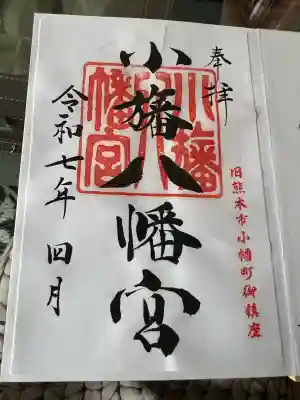 奉拝
旧熊本市小幡町御鎮座
小幡八幡宮
小幡八幡宮
令和七年四月